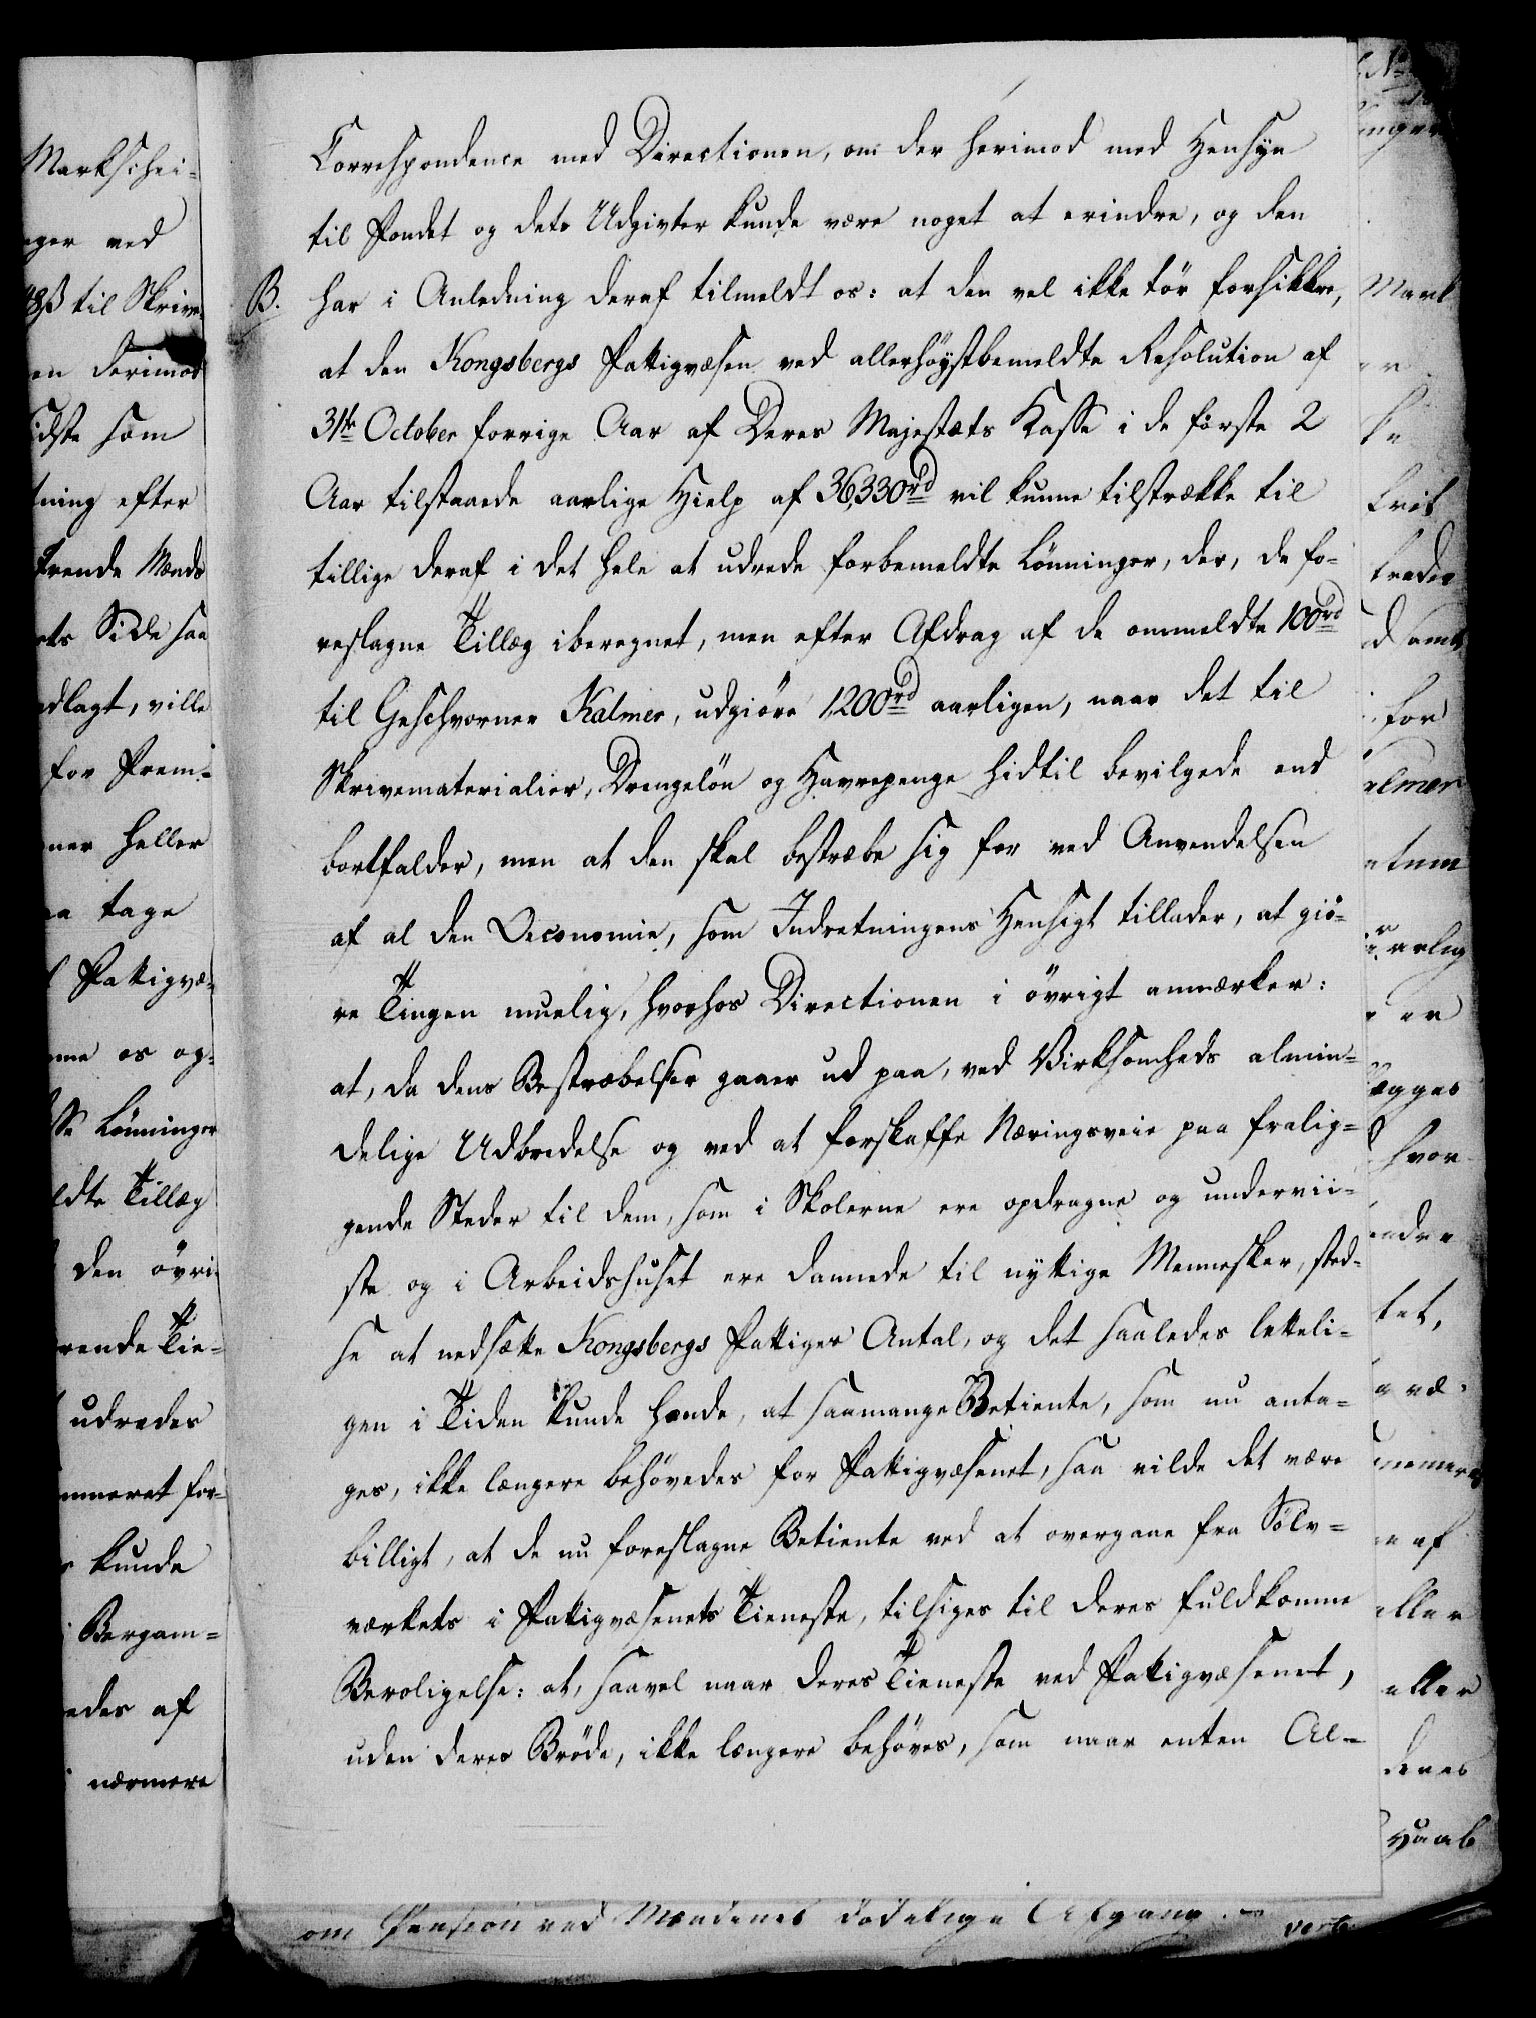 Correspondence med Directionen, om der herimod med Hensyn
til Fondet og dets Udgivter kunde være noget at erindre, og den
B. har i Anledning deraf tilmeldt os: at den vel ikke tör forsikkre,
at den Kongsbergs Fattigvæsen ved allerhöystbemeldte Resolution af
31te October forrige Aar af Deres Majestæts Kasse i de förste 2
Aar tilstaaede aarlige Hielp af 36,330rd vil kunne tilstrække til
tillige deraf i det hele at udrede forbemeldte Lönninger, der, de fo-
reslagne Tillæg iberegnet, men efter Afdrag af de ommeldte 100rd
til Geschworner Kalmer, udgiöre 1,200rd aarligen, naar det til
Skrivematerialier, Drengelön og Havrepenge hidtil bevilgede end
bortfalder, men at den skal bestræbe sig for ved Anvendelsen
af al den Oeconomie, som Indretningens Hensigt tillader, at giö-
re Tingen muelig, hvorhos Directionen i övrigt anmærker:
at, da dens Bestræbelser gaaer ud paa, ved Virksomheds almin-
delige Udbredelse og ved at forskaffe Næringsveie paa fralig-
gende Steder til dem, som i Skolerne ere opdragne og underviis-
ste og i Arbeidshuset ere dannede til nyttige Mennesker, sted-
se at nedsætte Kongsbergs Fattiges Antal, og det saaledes letteli-
gen i Tiden kunde hænde, at saamange Betiente, som nu anta-
ges, ikke længere behövedes for Fattigvæsenet, saa vilde det være
billigt, at de nu foreslagne Betiente ved at overgaae fra Sölv-
værkets i Fattigvæsenets Tieneste, tilsiges til deres fuldkomne
Beroligelse: at, saavel naar deres Tieneste ved Fattigvæsenet,
uden deres Bröde, ikke længere behöves, som naar enten Al-
om Pension ved Mændenes dödelige Afgang.
Markschei-
ger ved
til Skrive-
en derimod
sidste som
tning efter
trende Mænds
ets Side saa
dlagt, ville
for Frem-
ner heller
aa tage
Fattigvæ-
me os og-
sse Lönninger
ldte Tillæg
den övri-
rende Tie-
udredes
mmeret for-
kunde
Bergam-
edes af
nærmere
Mark
for
almer
hvor
tet,
af
eller
eller